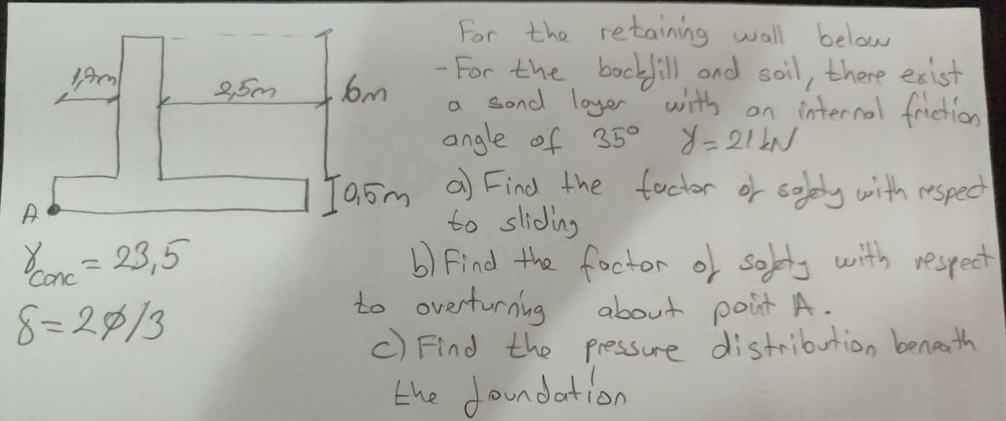 For the retaining wall below
- For the backfill and soil, there exist
a sand layer with an internal friction
angle of 35° γ=21kN
a) Find the factor of safety with respect
to sliding
b) Find the factor of safety with respect
to overturning about point A.
c) Find the pressure distribution beneath
the foundation
2,5m
6m
0,5m
A
γconc = 23,5
δ=2φ/3